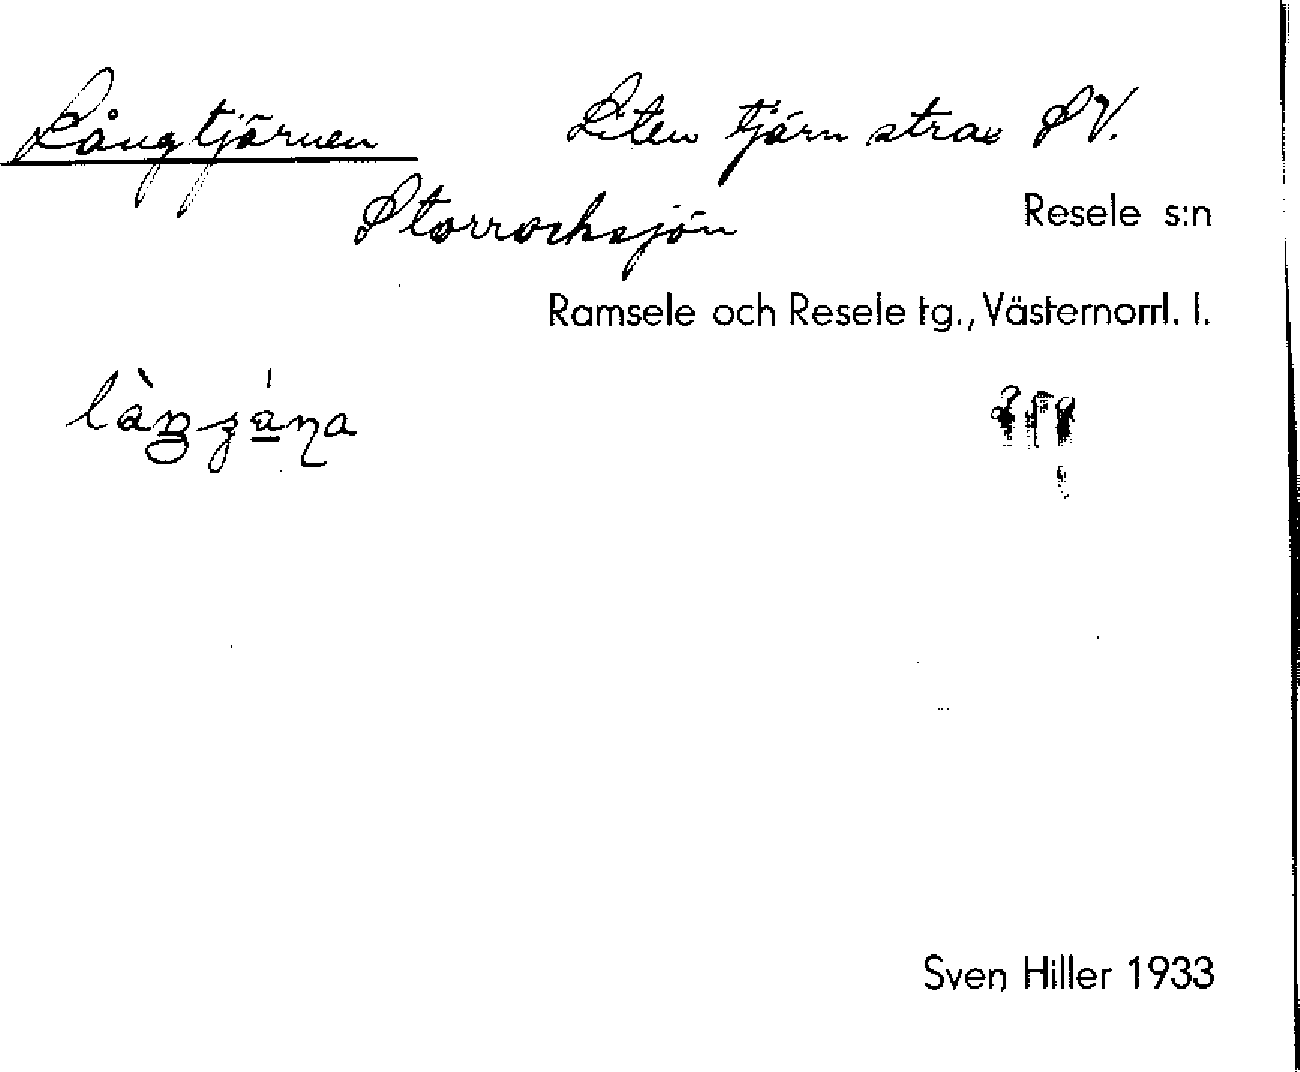 Långtjärnen Liten tjärn strax SV.
Storrocksjön Resele s:n
Ramsele och Resele tg., Västernorrl. l.
Sven Hiller 1933